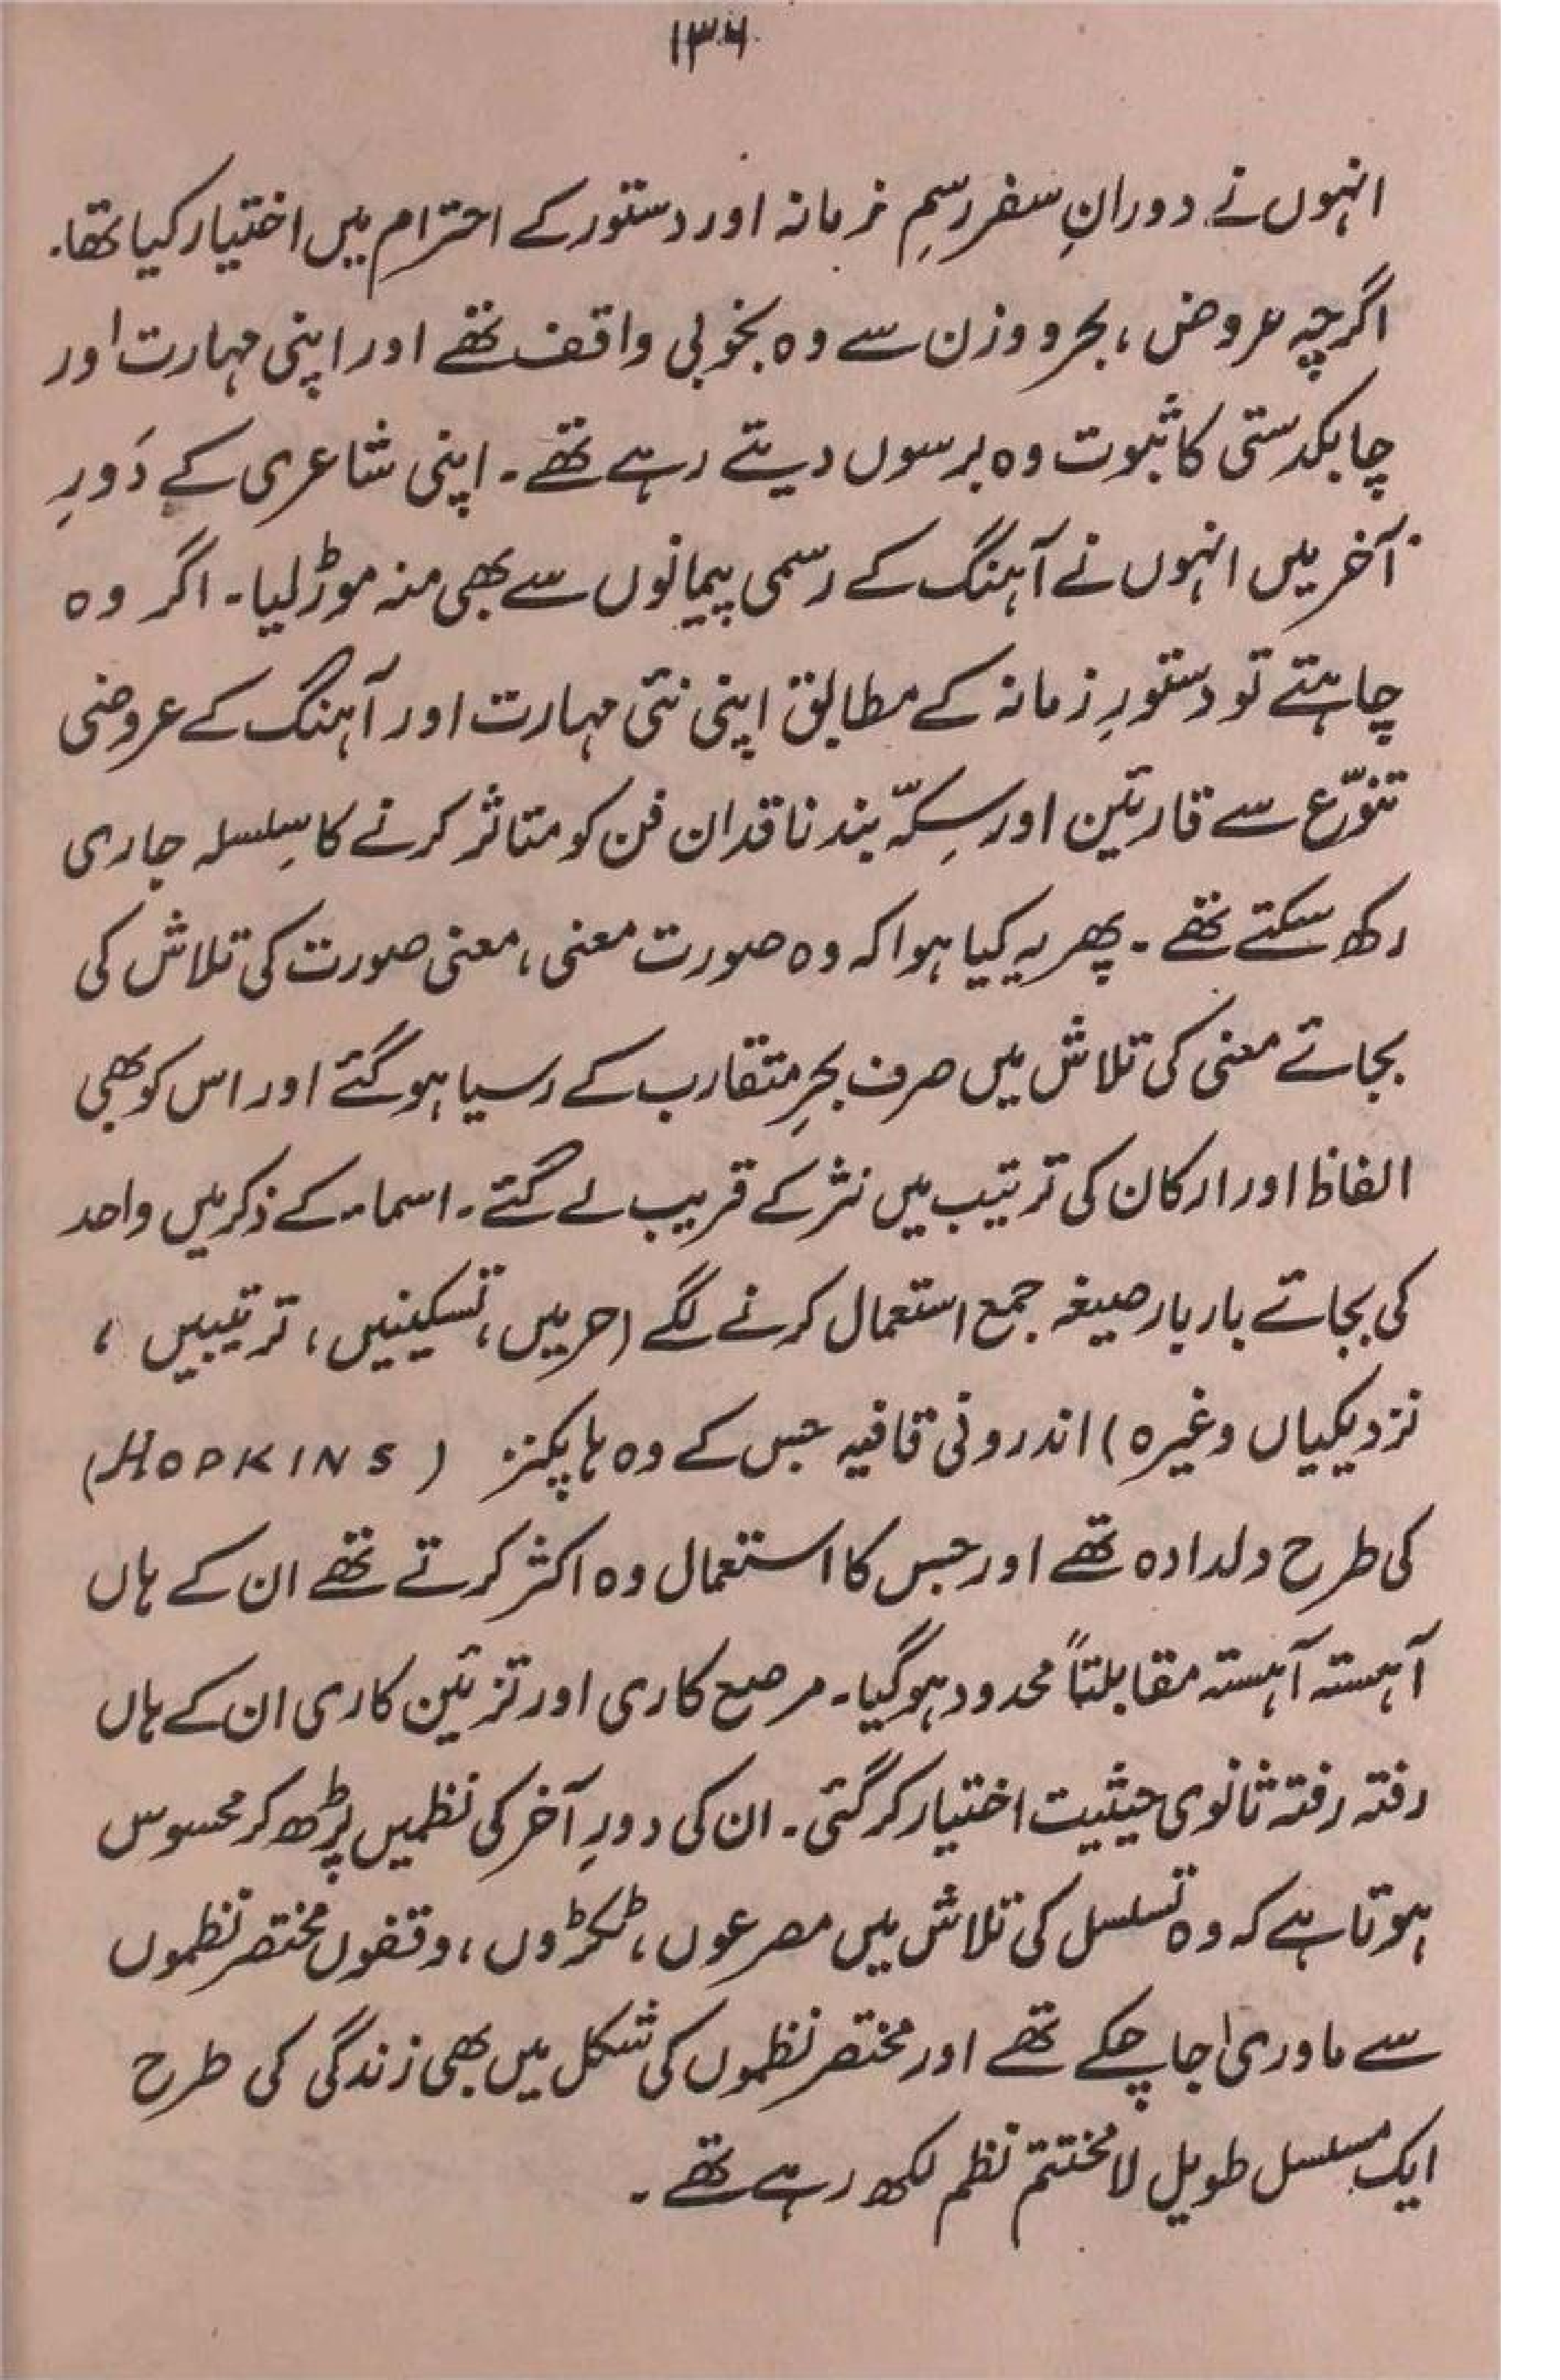 ۱۳۶
انہوں نے دورانِ سفر رسمِ زمانہ اور دستور کے احترام میں اختیار کیا تھا۔
اگرچہ عروض، بحر و وزن سے وہ بخوبی واقف تھے اور اپنی مہارت اور
چابکدستی کا ثبوت وہ برسوں دیتے رہے تھے۔ اپنی شاعری کے دَورِ
آخر میں انہوں نے آہنگ کے رسمی پیمانوں سے بھی منہ موڑ لیا۔ اگر وہ
چاہتے تو دستورِ زمانہ کے مطابق اپنی نئی مہارت اور آہنگ کے عروضی
تنوّع سے قارئین اور سکہّ بند ناقدان فن کو متاثر کرنے کا سِلسلہ جاری
رکھ سکتے تھے۔ پھر یہ کیا ہوا کہ وہ صورت معنی، معنی صورت کی تلاش کی
بجائے معنی کی تلاش میں صرف بحرِ متقارب کے رسیا ہو گئے اور اس کو بھی
الفاظ اور ارکان کی ترتیب میں نثر کے قریب لے گئے۔ اسماء کے ذکر میں واحد
کی بجائے بار بار صیغہ جمع استعمال کرنے لگے (حریں، تسکینیں، ترتیبیں،
نزدیکیاں وغیرہ) اندرونی قافیہ جس کے وہ ہاپکنز (HOPKINS)
کی طرح دلدادہ تھے اور جس کا استعمال وہ اکثر کرتے تھے ان کے ہاں
آہستہ آہستہ مقابلتاً محدود ہو گیا۔ مرصع کاری اور تزئین کاری ان کے ہاں
رفتہ رفتہ ثانوی حیثیت اختیار کر گئی۔ ان کی دورِ آخر کی نظمیں پڑھ کر محسوس
ہوتا ہے کہ وہ تسلسل کی تلاش میں مصرعوں، ٹکڑوں، وقفوں مختصر نظموں
سے ماوریٰ جا چکے تھے اور مختصر نظموں کی شکل میں بھی زندگی کی طرح
ایک مسلسل طویل لا مختتم نظم لکھ رہے تھے۔